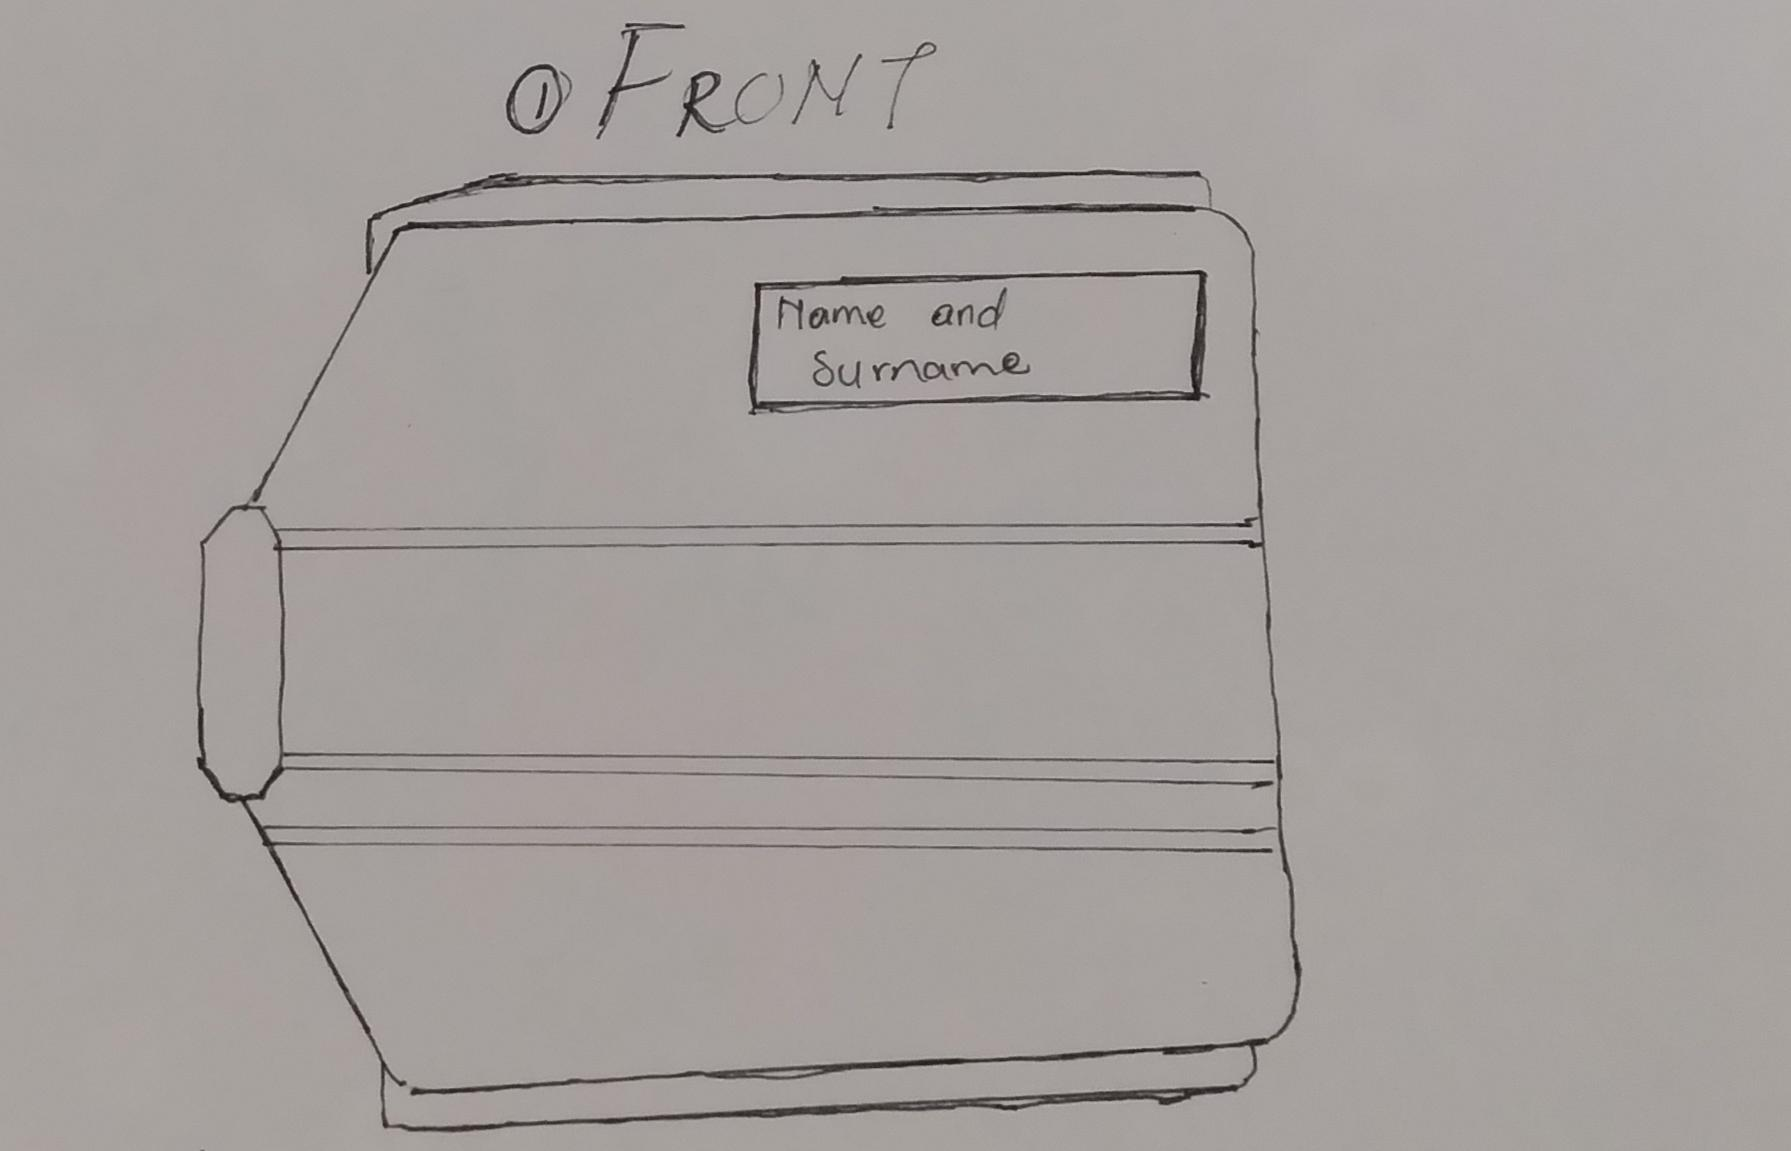 ① FRONT
Name and
Surname